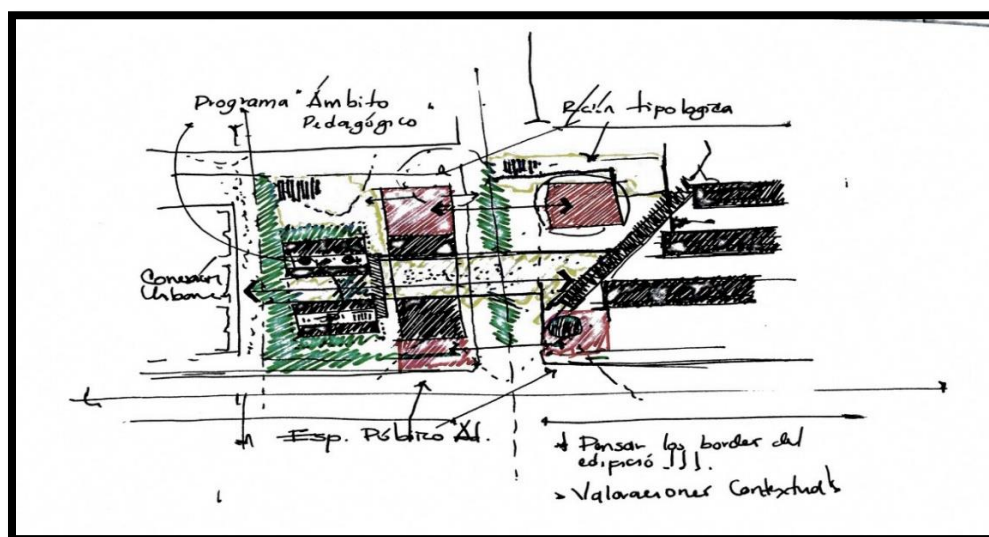 Programa "Ámbito
Pedagógico"
tipologica
Conexion
Urbana
Esp. Público Ad.
Pensar los bordes del
edifició
> Valoraciones Contextuals